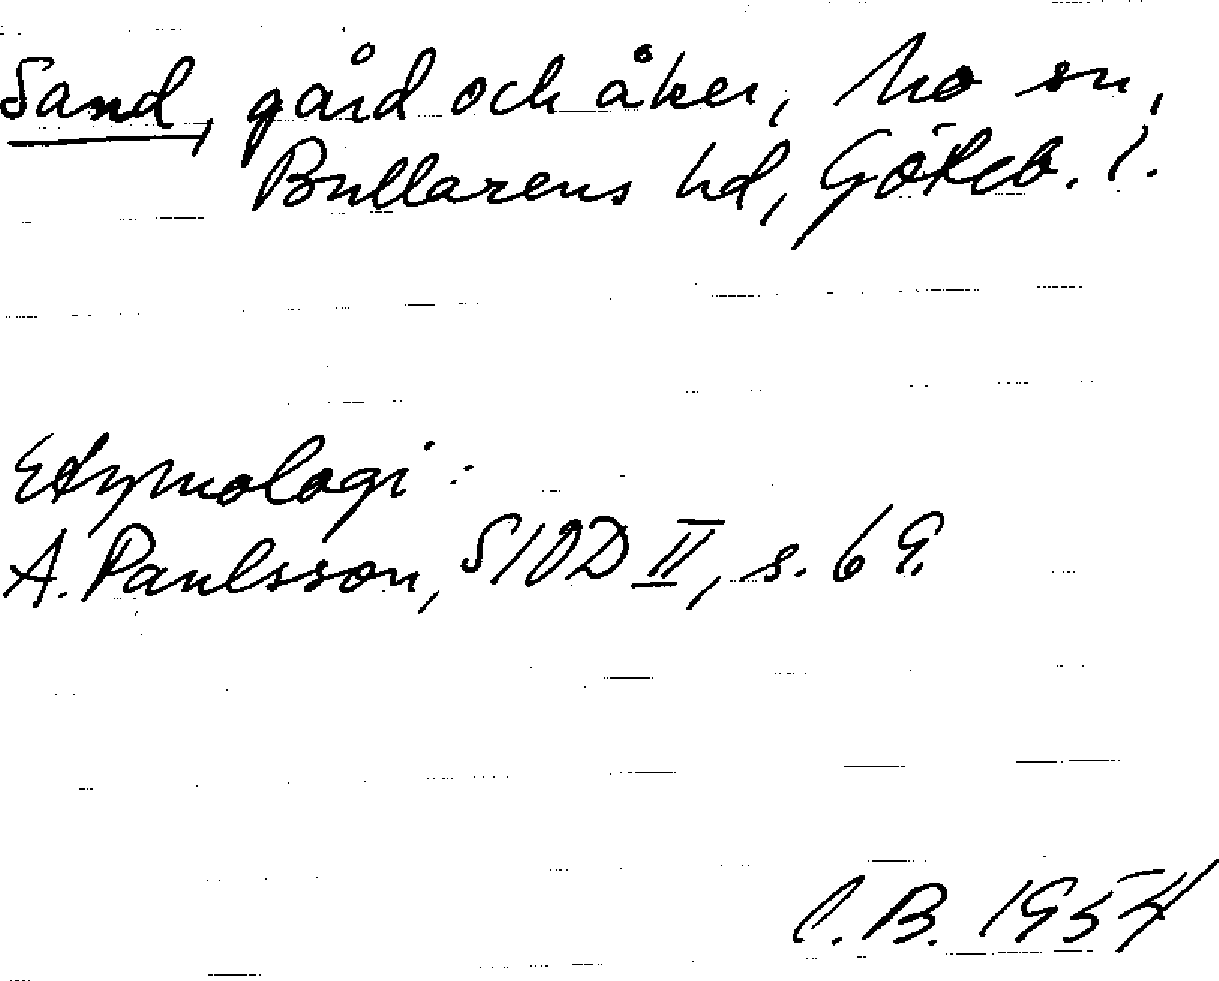 Sand, gård och åker, Mo sn,
Bullarens hd, Göteb. l.
Etymologi:
A. Paulsson, SIOD II, s. 69.
C.B. 1954